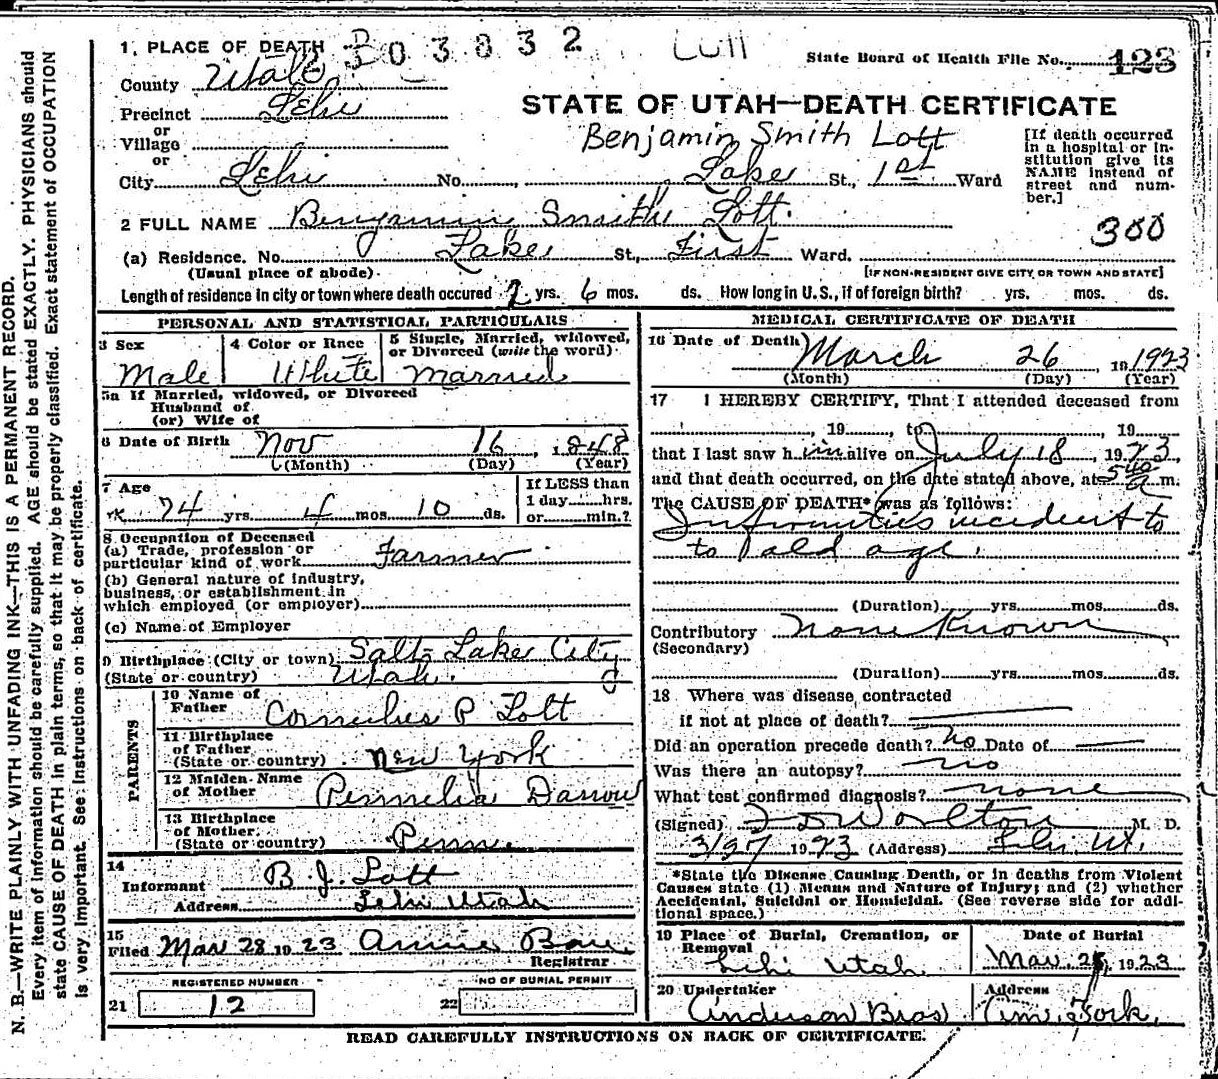 1. PLACE OF DEATH 2303832 Lott State Board of Health File No. 123
County Utah
Precinct Lehi
STATE OF UTAH—DEATH CERTIFICATE
or
Village
or
Benjamin Smith Lott
[If death occurred in a hospital or institution give its NAME instead of street and number.]
City Lehi No. Lake St., 1st Ward
2 FULL NAME Benjamin Smith Lott.
300
(a) Residence. No. Lake St., First Ward.
(Usual place of abode) [IF NON-RESIDENT GIVE CITY OR TOWN AND STATE]
Length of residence in city or town where death occured 2 yrs. 6 mos. ds. How long in U. S., if of foreign birth? yrs. mos. ds.
PERSONAL AND STATISTICAL PARTICULARS
3 Sex Male
4 Color or Race White
5 Single, Married, widowed, or Divorced (write the word) Married
5a If Married, widowed, or Divorced
Husband of
(or) Wife of
6 Date of Birth Nov 16, 1848
(Month) (Day) (Year)
7 Age 74 yrs. 4 mos. 10 ds.
If LESS than
1 day hrs.
or min.?
8 Occupation of Deceased
(a) Trade, profession or
particular kind of work Farmer
(b) General nature of industry,
business, or establishment in
which employed (or employer)
(c) Name of Employer
9 Birthplace (City or town) Salt Lake City
(State or country) Utah.
PARENTS
10 Name of
Father Cornelius P Lott
11 Birthplace
of Father
(State or country) New York
12 Maiden Name
of Mother Permelia Darrow
13 Birthplace
of Mother.
(State or country) Penn.
14
Informant B. J. Lott
Address Lehi Utah
15
Filed Mar 28 1923 Annie
Registrar
REGISTERED NUMBER
21 12
NO OF BURIAL PERMIT
22
MEDICAL CERTIFICATE OF DEATH
16 Date of Death March 26 191923
(Month) (Day) (Year)
17 I HEREBY CERTIFY, That I attended deceased from
, 19 , to , 19
that I last saw him alive on July 18, 1923,
and that death occurred, on the date stated above, at 5 40 a m.
The CAUSE OF DEATH* was as follows:
Infirmities incident to
to old age.
(Duration) yrs. mos. ds.
Contributory None Known
(Secondary)
(Duration) yrs. mos. ds.
18 Where was disease contracted
if not at place of death?
Did an operation precede death? No Date of
Was there an autopsy? no
What test confirmed diagnosis? none
(Signed) Worlton M. D.
3/27 1923 (Address) Lehi, Ut.
*State the Disease Causing Death, or in deaths from Violent
Causes state (1) Means and Nature of Injury; and (2) whether
Accidental, Suicidal or Homicidal. (See reverse side for addi-
tional space.)
19 Place of Burial, Cremation, or
Removal
Lehi Utah
Date of Burial
Mar. 28, 1923
20 Undertaker
Anderson Bros
Address
Am. Fork.
READ CAREFULLY INSTRUCTIONS ON BACK OF CERTIFICATE.
N. B.—WRITE PLAINLY WITH UNFADING INK—THIS IS A PERMANENT RECORD.
Every item of information should be carefully supplied. AGE should be stated EXACTLY. PHYSICIANS should
state CAUSE OF DEATH in plain terms, so that it may be properly classified. Exact statement of OCCUPATION
is very important. See Instructions on back of certificate.